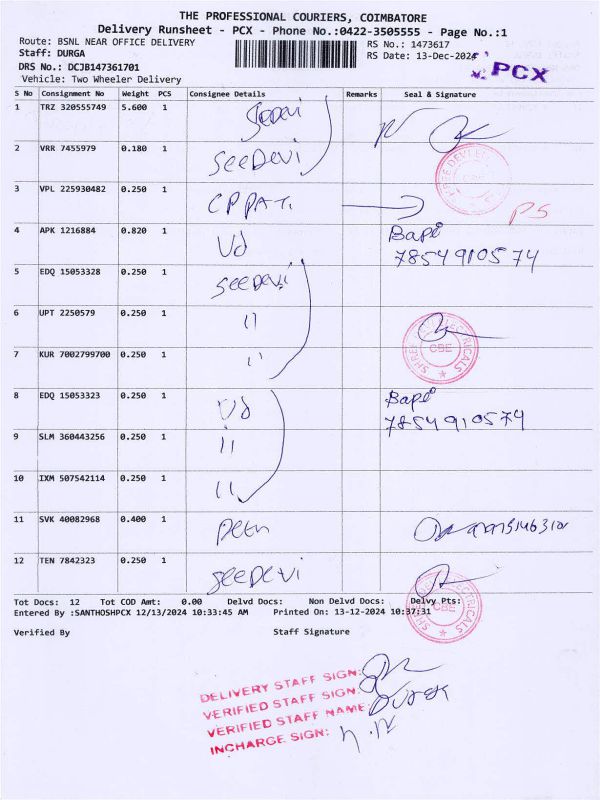 THE PROFESSIONAL COURIERS, COIMBATORE
Delivery Runsheet - PCX - Phone No.:0422-3505555 - Page No.:1
Route: BSNL NEAR OFFICE DELIVERY RS No.: 1473617
Staff: DURGA RS Date: 13-Dec-2024
DRS No.: DCJB147361701
PCX
Vehicle: Two Wheeler Delivery
S No Consignment No Weight PCS Consignee Details Remarks Seal & Signature
1 TRZ 320555749 5.600 1 SeeDevi
2 VRR 7455979 0.180 1 SeeDevi
3 VPL 225930482 0.250 1 CPPATi PS
4 APK 1216884 0.820 1 Vd Bapi
7854910574
5 EDQ 15053328 0.250 1 SeeDevi
6 UPT 2250579 0.250 1 11
SHREE DEVI ELECTRICALS CBE
7 KUR 7002799700 0.250 1 11
8 EDQ 15053323 0.250 1 Vd Bapi
7854910574
9 SLM 360443256 0.250 1 11
10 IXM 507542114 0.250 1 11
11 SVK 40082968 0.400 1
12 TEN 7842323 0.250 1 SeeDevi
Tot Docs: 12 Tot COD Amt: 0.00 Delvd Docs: Non Delvd Docs: Delvy Pts:
Entered By :SANTHOSHPCX 12/13/2024 10:33:45 AM Printed On: 13-12-2024 10:37:31
Verified By Staff Signature
DELIVERY STAFF SIGN:
VERIFIED STAFF SIGN:
VERIFIED STAFF NAME:
INCHARGE SIGN: